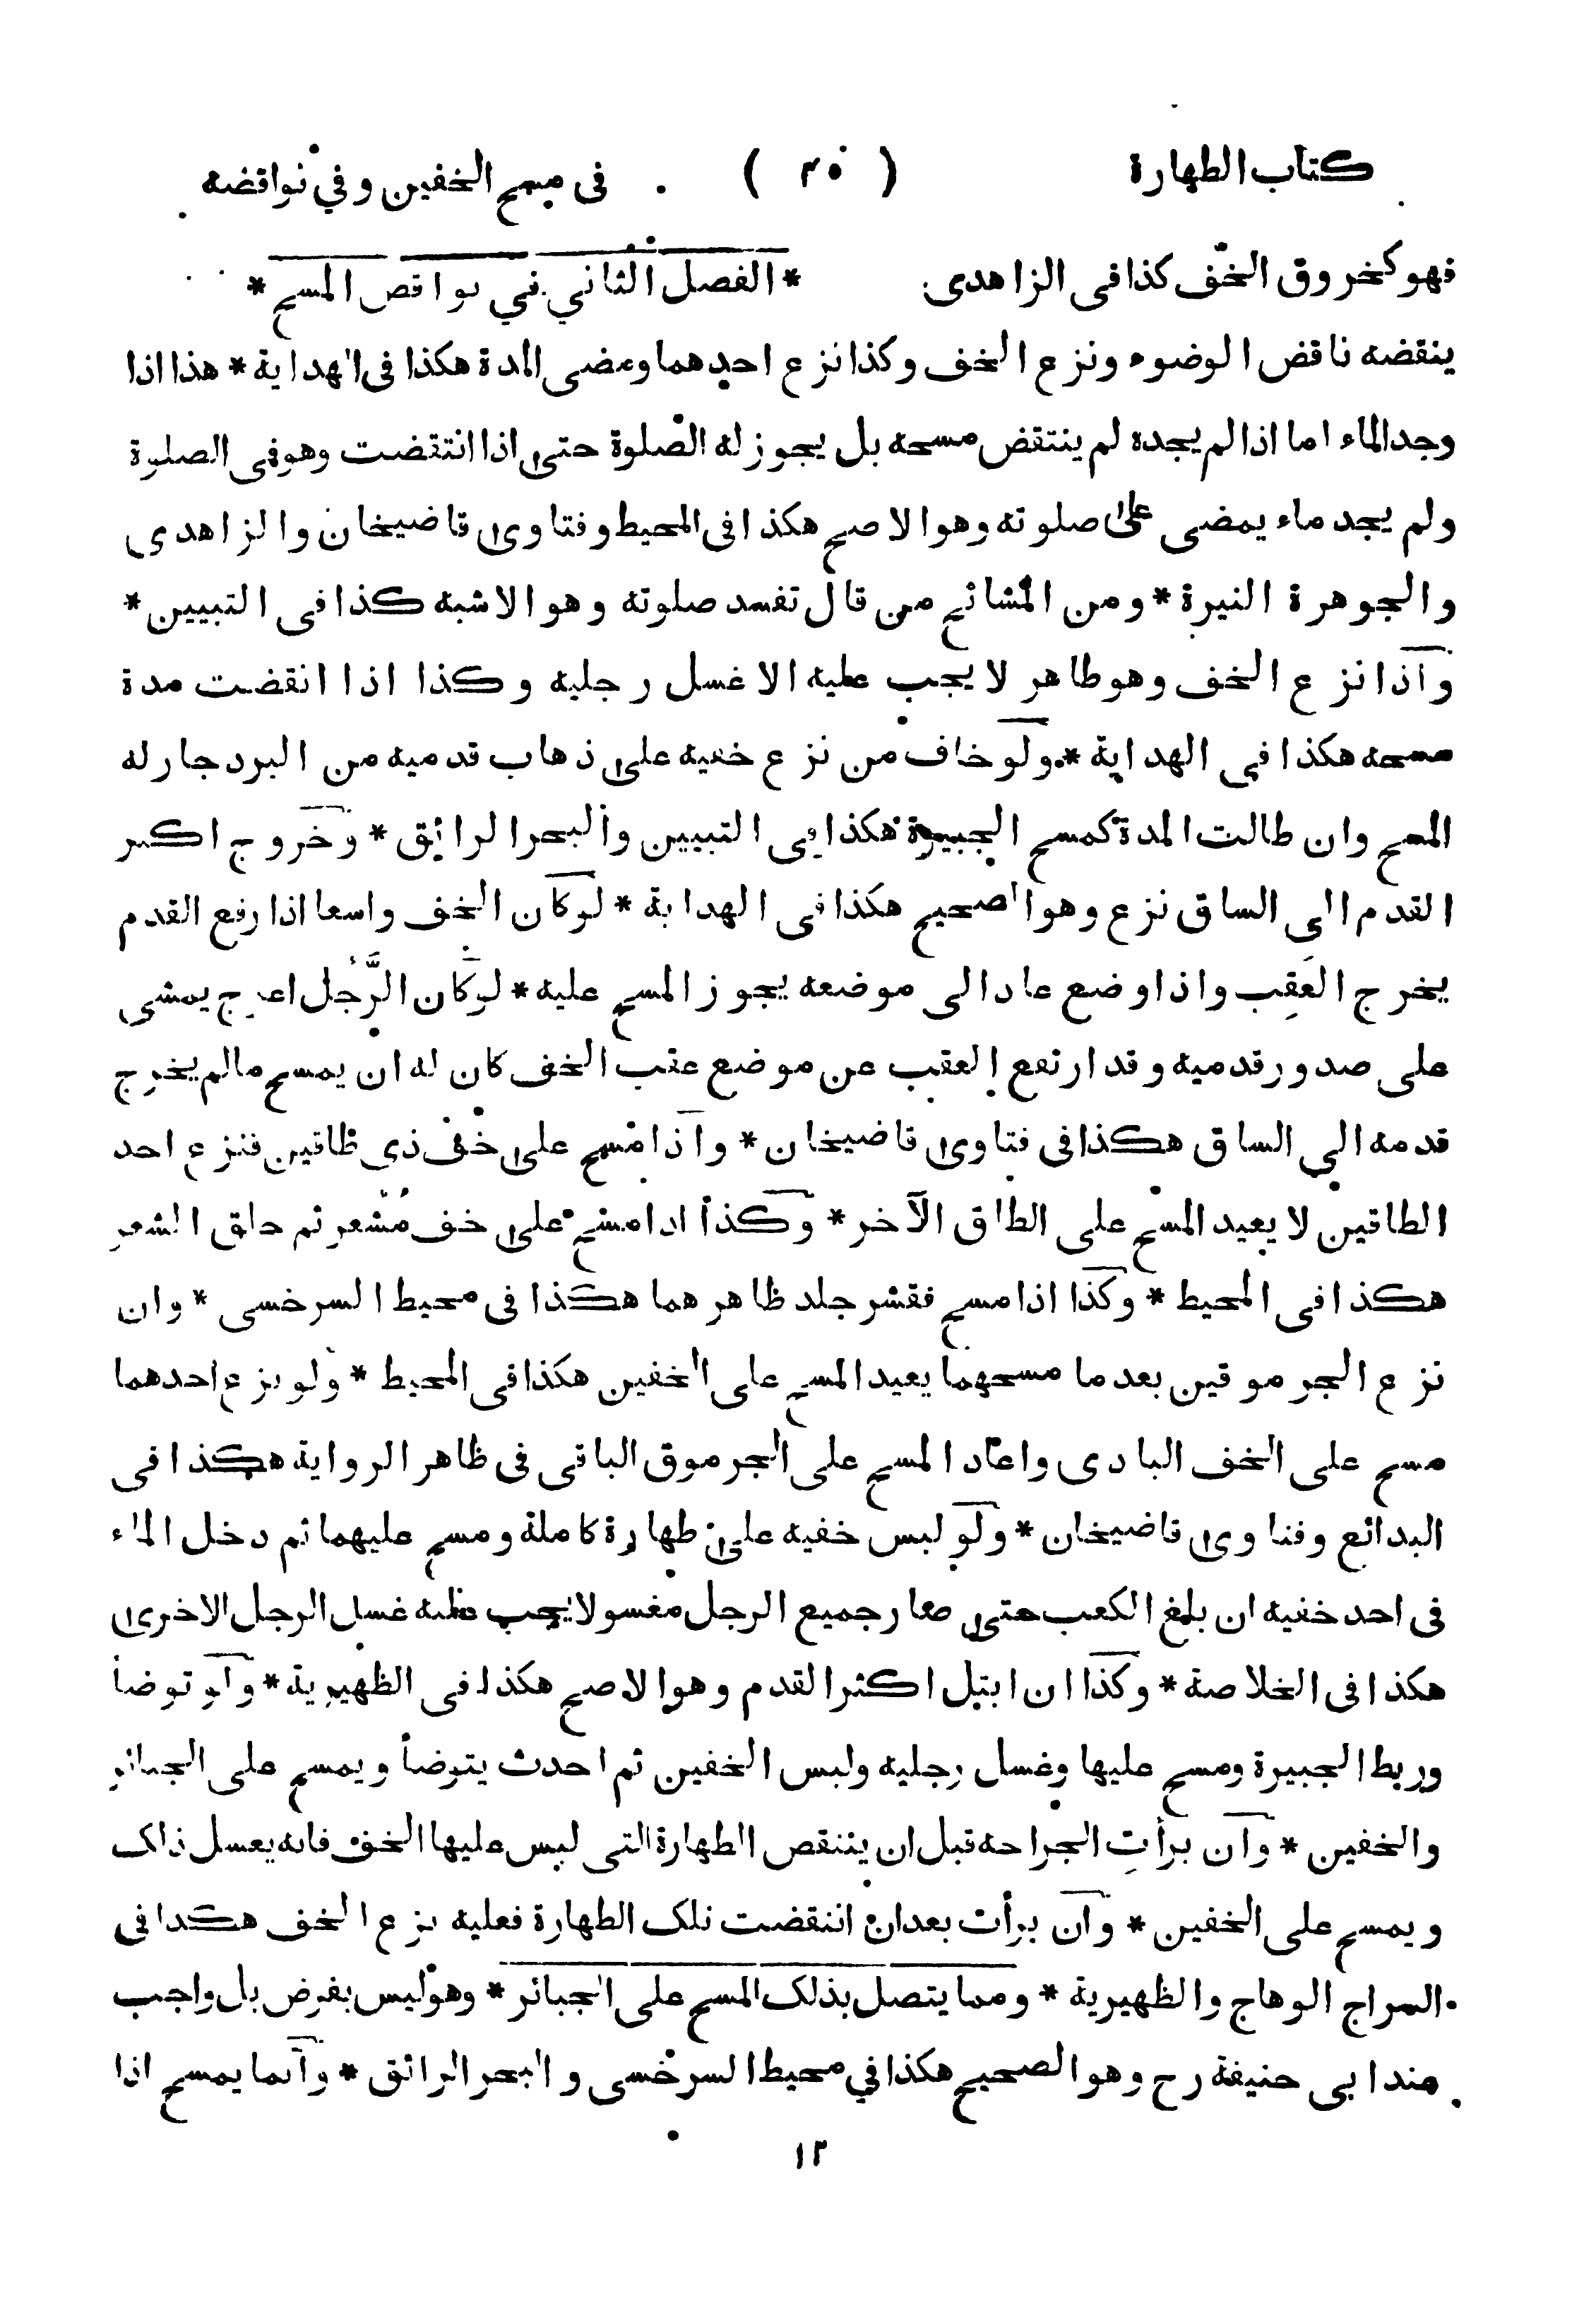 كتاب الطهارة ( ٤٥ ) فى مسح الخفين وفي نواقضه
فهو كخروق الخف كذا فى الزاهدى * الفصل الثاني في نواقض المسح *
ينقضه ناقض الوضوء ونزع الخف وكذا نزع احدهما ومضى المدة هكذا فى الهداية * هذا اذا
وجد الماء اما اذا لم يجده لم ينتقض مسحه بل يجوز له الصلوة حتى اذا انتقضت وهو فى الصلوة
ولم يجد ماء يمضى على صلوته وهو الاصح هكذا فى المحيط وفتاوى قاضيخان والزاهدى
والجوهرة النيرة * ومن المشائح من قال تفسد صلوته وهو الاشبه كذا فى التبيين *
وآذا نزع الخف وهو طاهر لا يجب عليه الا غسل رجليه وكذا اذا انقضت مدة
مسحه هكذا فى الهداية * ولو خاف من نزع خفيه على ذهاب قدميه من البرد جاز له
المسح وان طالت المدة كمسح الجبيرة هكذا فى التبيين والبحر الرائق * وخروج اكثر
القدم الى الساق نزع وهو الصحيح هكذا فى الهداية * لوكان الخف واسعا اذا رفع القدم
يخرج العقِب واذا وضع عاد الى موضعه يجوز المسح عليه * لوكان الرَّجُل اعرج يمشى
على صدور قدميه وقد ارتفع العقب عن موضع عقب الخف كان له ان يمسح مالم يخرج
قدمه الي الساق هكذا فى فتاوى قاضيخان * وآذا مسح على خف ذى طاقين فنزع احد
الطاقين لا يعيد المسح على الطاق الآخر * وكذا اذا مسح على خف مُشعر ثم حلق الشعر
هكذا فى المحيط * وكذا اذا مسح فقشر جلد ظاهر هما هكذا فى محيط السرخسى * وان
نزع الجرموقين بعد ما مسحهما يعيد المسح على الخفين هكذا فى المحيط * ولو نزع احدهما
مسح على الخف البادى واعاد المسح على الجرموق الباقى فى ظاهر الرواية هكذا فى
البدائع وفتاوى قاضيخان * ولو لبس خفيه على طهارة كاملة ومسح عليهما ثم دخل الماء
فى احد خفيه ان بلغ الكعب حتى صار جميع الرجل مغسولا يجب عليه غسل الرجل الاخرى
هكذا فى الخلاصة * وكذا ان ابتل اكثر القدم وهو الاصح هكذا فى الظهيرية * ولو توضأ
وربط الجبيرة ومسح عليها وغسل رجليه ولبس الخفين ثم احدث يتوضأ ويمسح على الجبائر
والخفين * وآن برأتِ الجراحة قبل ان ينتقض الطهارة التى لبس عليها الخف فانه يغسل ذلك
ويمسح على الخفين * وآن برأت بعد ان انتقضت تلك الطهارة فعليه نزع الخف هكذا فى
السراج الوهاج والظهيرية * ومما يتصل بذلك المسح على الجبائر * وهو ليس بفرض بل واجب
عند ابى حنيفة رح وهو الصحيح هكذا في محيط السرخسى والبحر الرائق * وآنما يمسح اذا
١٢